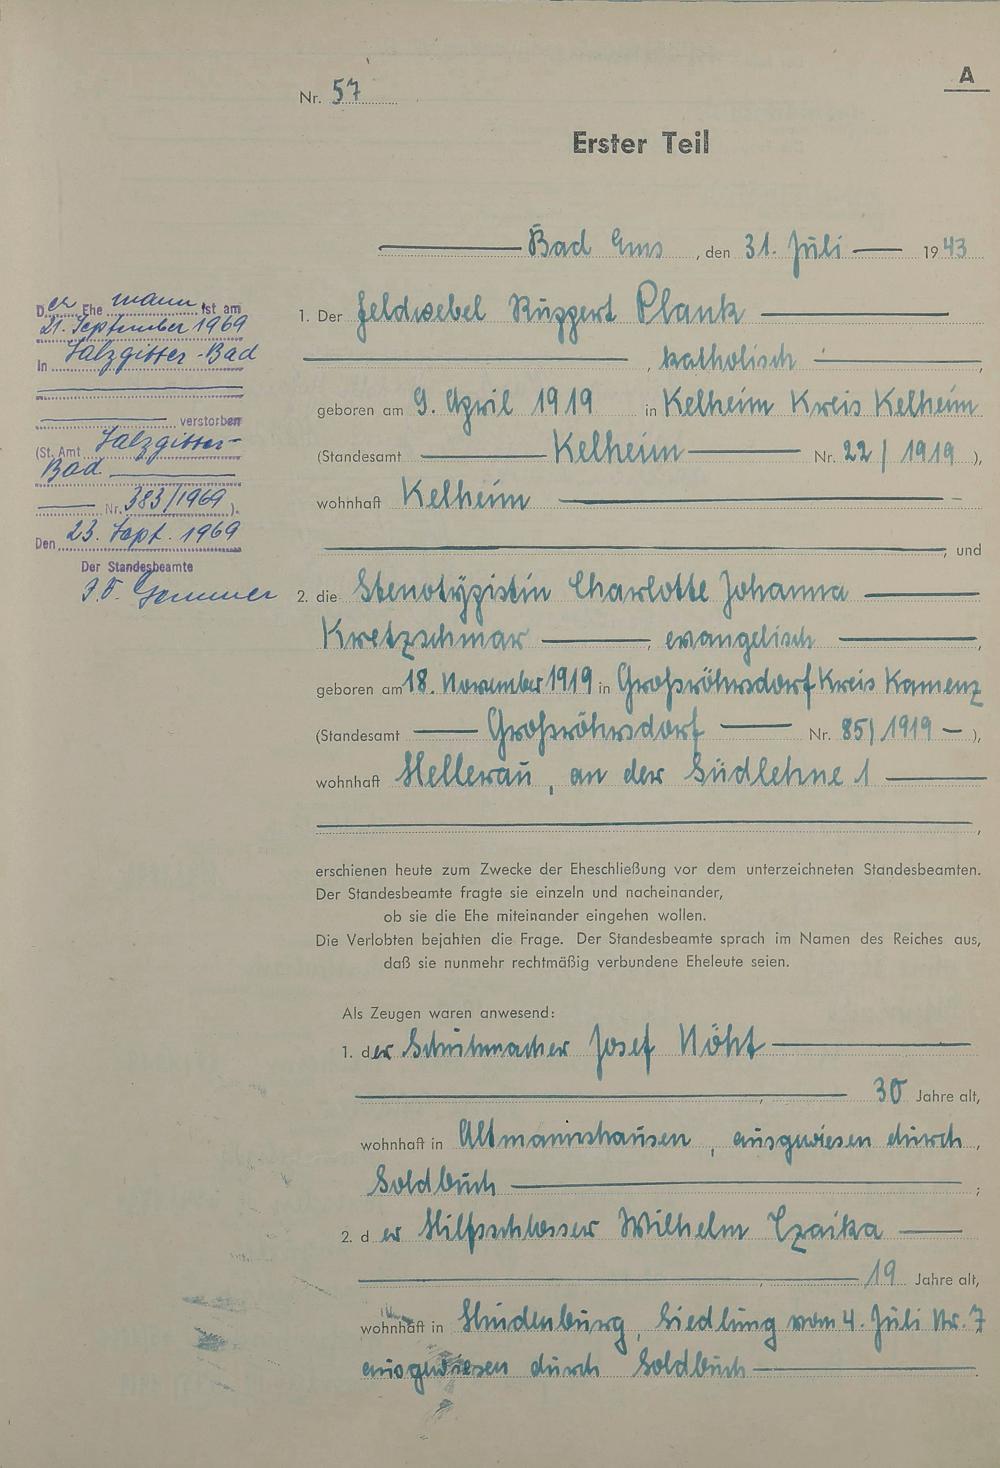 A
Nr. 57
Erster Teil
Bad Ems, den 31. Juli 1943
1. Der Feldwebel Ruppert Plank
, katholisch,
geboren am 9. April 1919 in Kelheim Kreis Kelheim
(Standesamt Kelheim Nr. 22/1919),
wohnhaft Kelheim
, und
2. die Stenotypistin Charlotte Johanna
Kretzschmar, evangelisch,
geboren am 18. November 1919 in Großröhrsdorf Kreis Kamenz
(Standesamt Großröhrsdorf Nr. 85/1919),
wohnhaft Hellerau, an der Südlehne 1
,
erschienen heute zum Zwecke der Eheschließung vor dem unterzeichneten Standesbeamten.
Der Standesbeamte fragte sie einzeln und nacheinander,
ob sie die Ehe miteinander eingehen wollen.
Die Verlobten bejahten die Frage. Der Standesbeamte sprach im Namen des Reiches aus,
daß sie nunmehr rechtmäßig verbundene Eheleute seien.
Als Zeugen waren anwesend:
1. der Schuhmacher Josef
, 30 Jahre alt,
wohnhaft in Altmannshausen, ausgewiesen durch
Soldbuch;
2. der Hilfsschlosser Wilhelm Czaika
, 19 Jahre alt,
wohnhaft in Hindenburg, Siedlung vom 4. Juli Nr. 7
ausgewiesen durch Soldbuch
Der Ehemann ist am
21. September 1969
in Salzgitter-Bad
verstorben
(St. Amt Salzgitter-
Bad
Nr. 383/1969).
Den 23. Sept. 1969
Der Standesbeamte